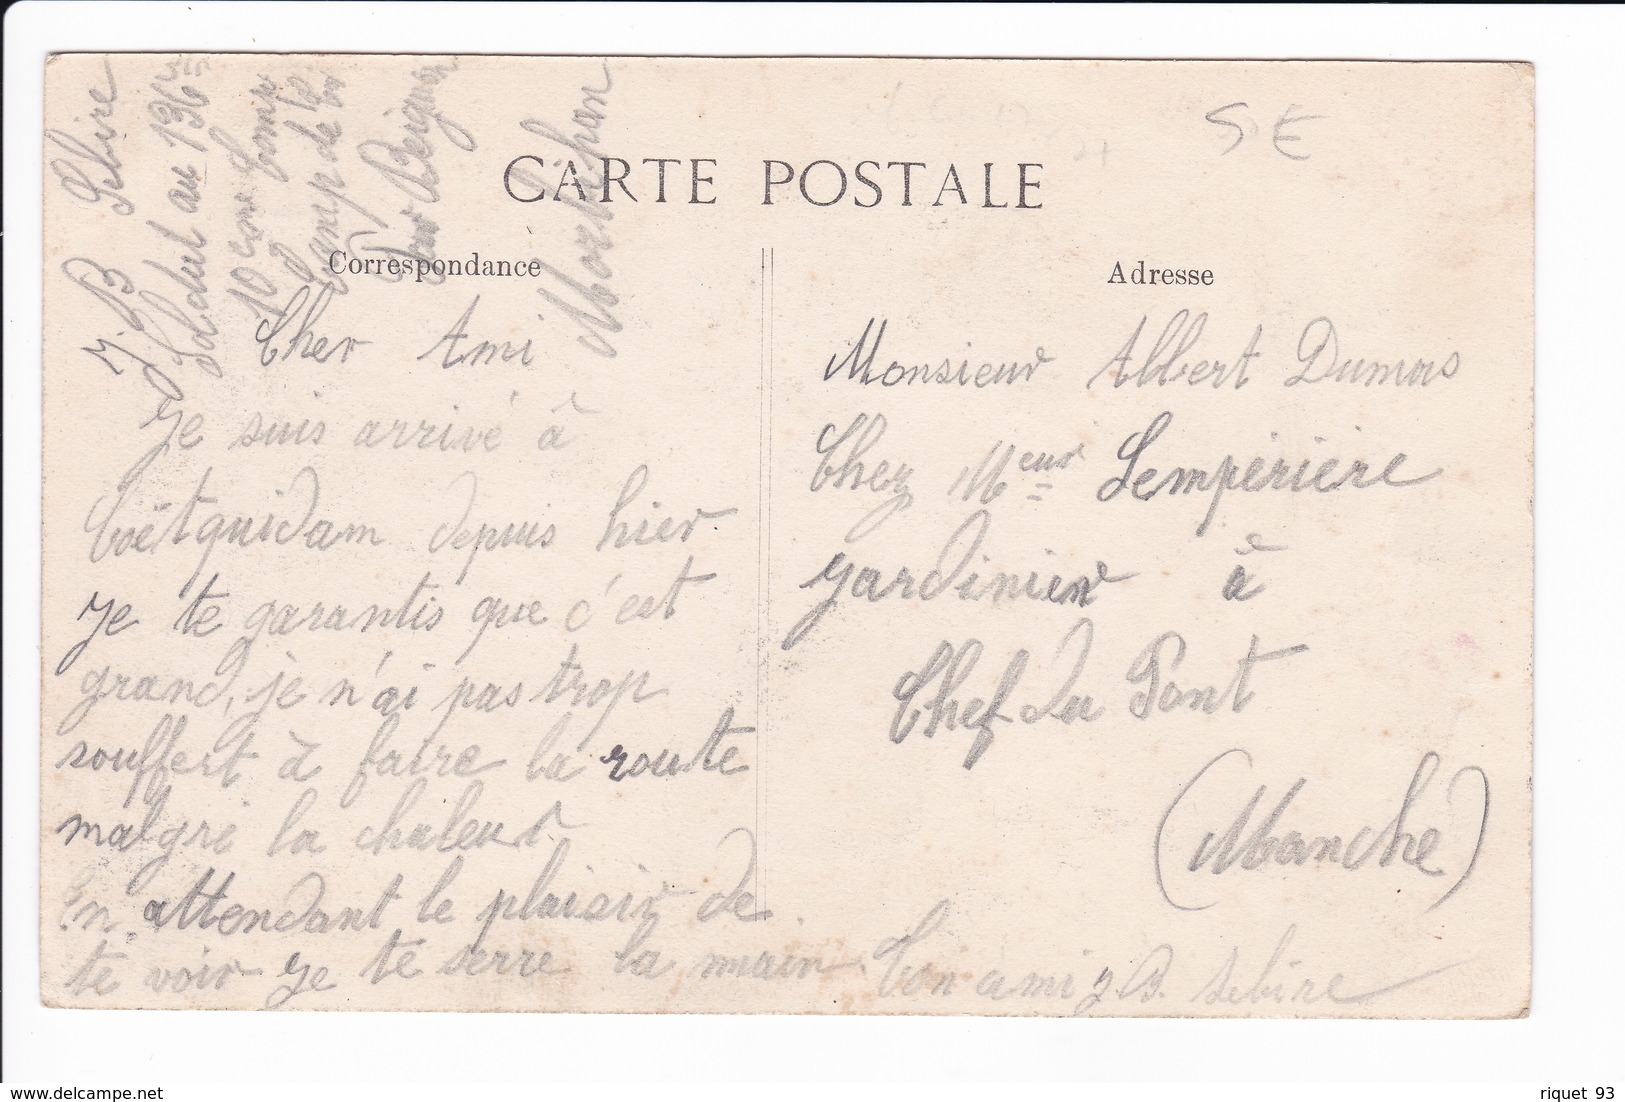 J. B Sebire
Soldat au 136e
10 eme Comp
Camp de la
Morbihan
5 €
CARTE POSTALE
Correspondance
Adresse
Cher Ami
Je suis arrivé à
Coëtquidam depuis hier
Je te garantis que c'est
grand, je n'ai pas trop
souffert à faire la route
malgré la chaleur
En attendant le plaisir de
te voir Je te serre la main. Ton ami J.B. Sebire
Monsieur Albert Dumas
Chez Meur Lempèrière
Jardinier à
Chef du Pont
(Manche)
riquet 93